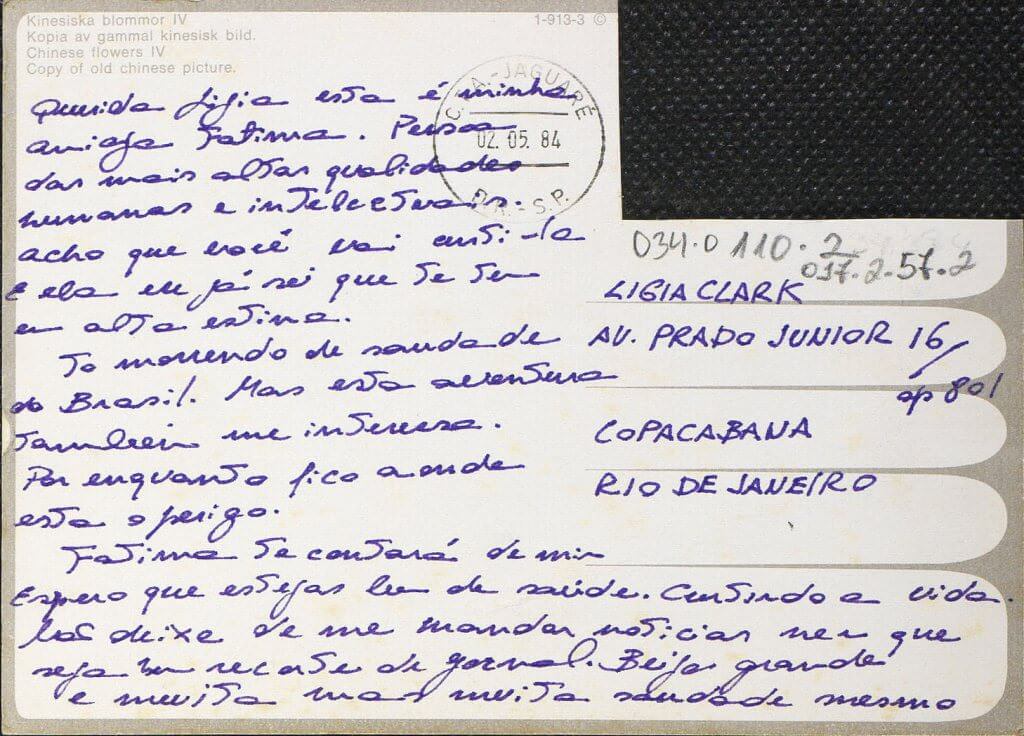 Kinesiska blommor IV
Kopia av gammal kinesisk bild.
Chinese flowers IV
Copy of old chinese picture.
1-913-3 ©
C.T.A.-JAGUARÉ
02.05.84
D.R.-S.P.
Querida Ligia esta é minha
amiga Fatima. Persoa
das mais altas qualidades
humanas e intelectuais.
acho que você vai curti-la
E ela eu já sei que te tem
em alta estima.
To morrendo de saudade
do Brasil. Mas esta aventura
também me interesa.
Por enquanto fico aonde
esta o perigo.
Fatima te contará de mim
Espero que estejas bem de saúde. Curtindo a vida.
Não deixe de me mandar noticias nem que
seja um recorte de jornal. Beijo grande
e muita mas muita saudade mesmo
034.0 110.2
017.2-57.2
LIGIA CLARK
AV. PRADO JUNIOR 16/
ap 801
COPACABANA
RIO DE JANEIRO